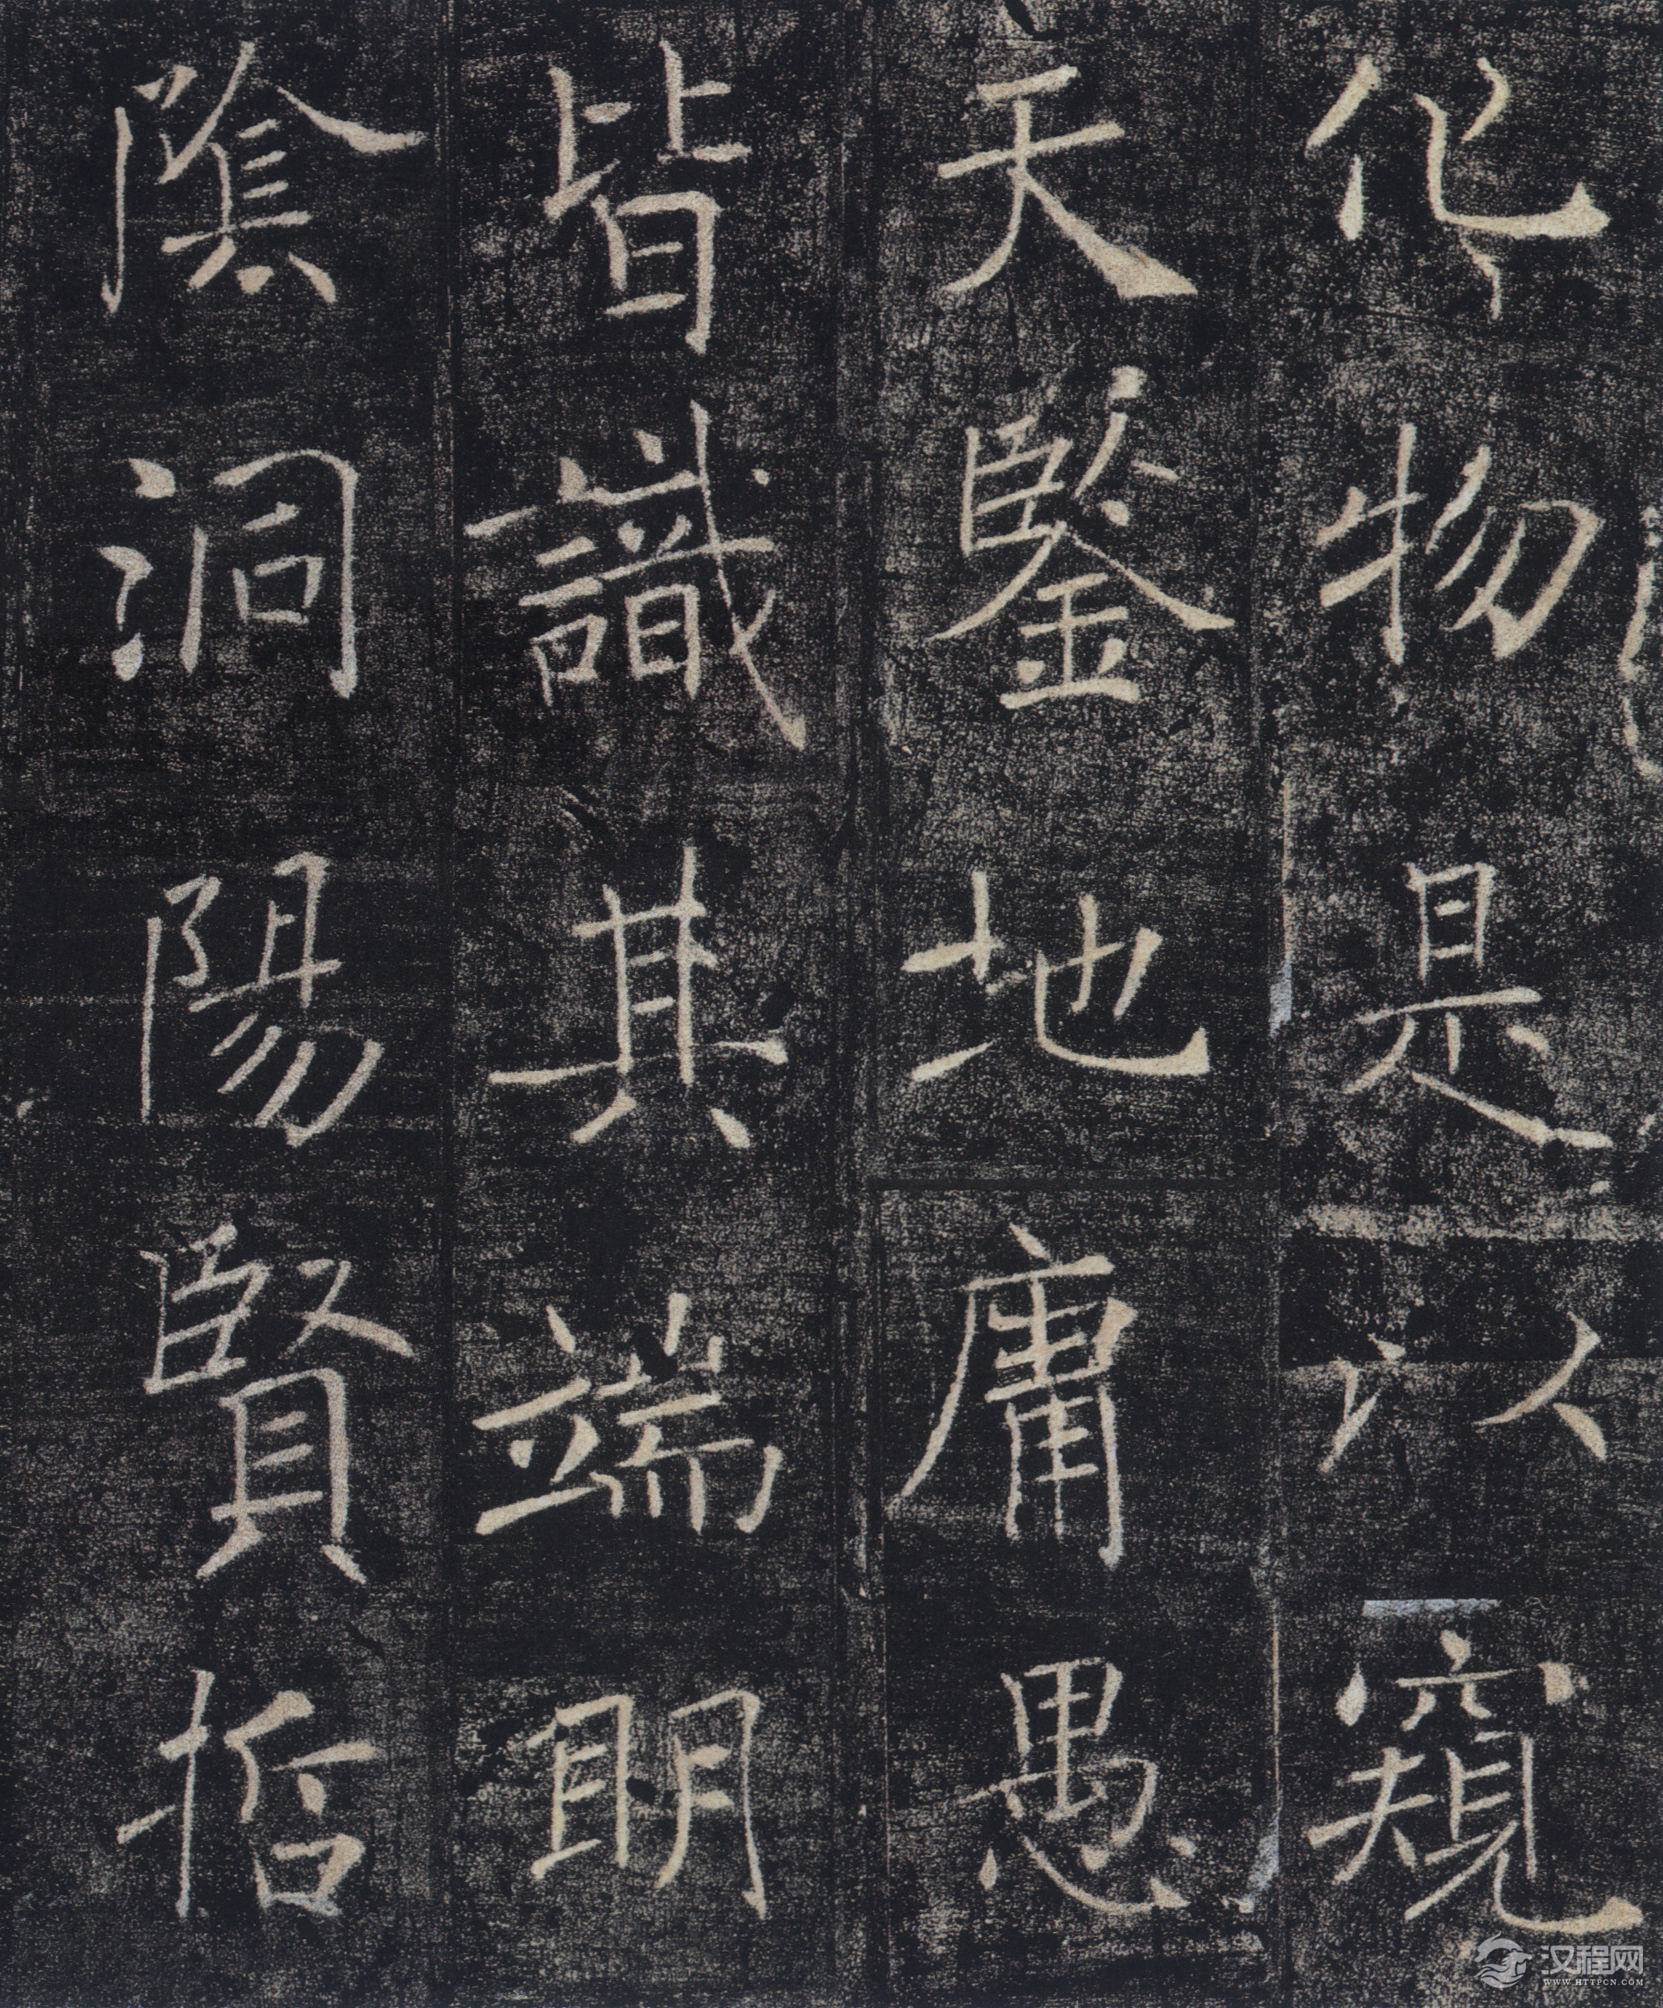 化物是以窺
天鑒地庸愚
皆識其端明
陰洞陽賢哲
汉程网
WWW.HTTPCN.COM